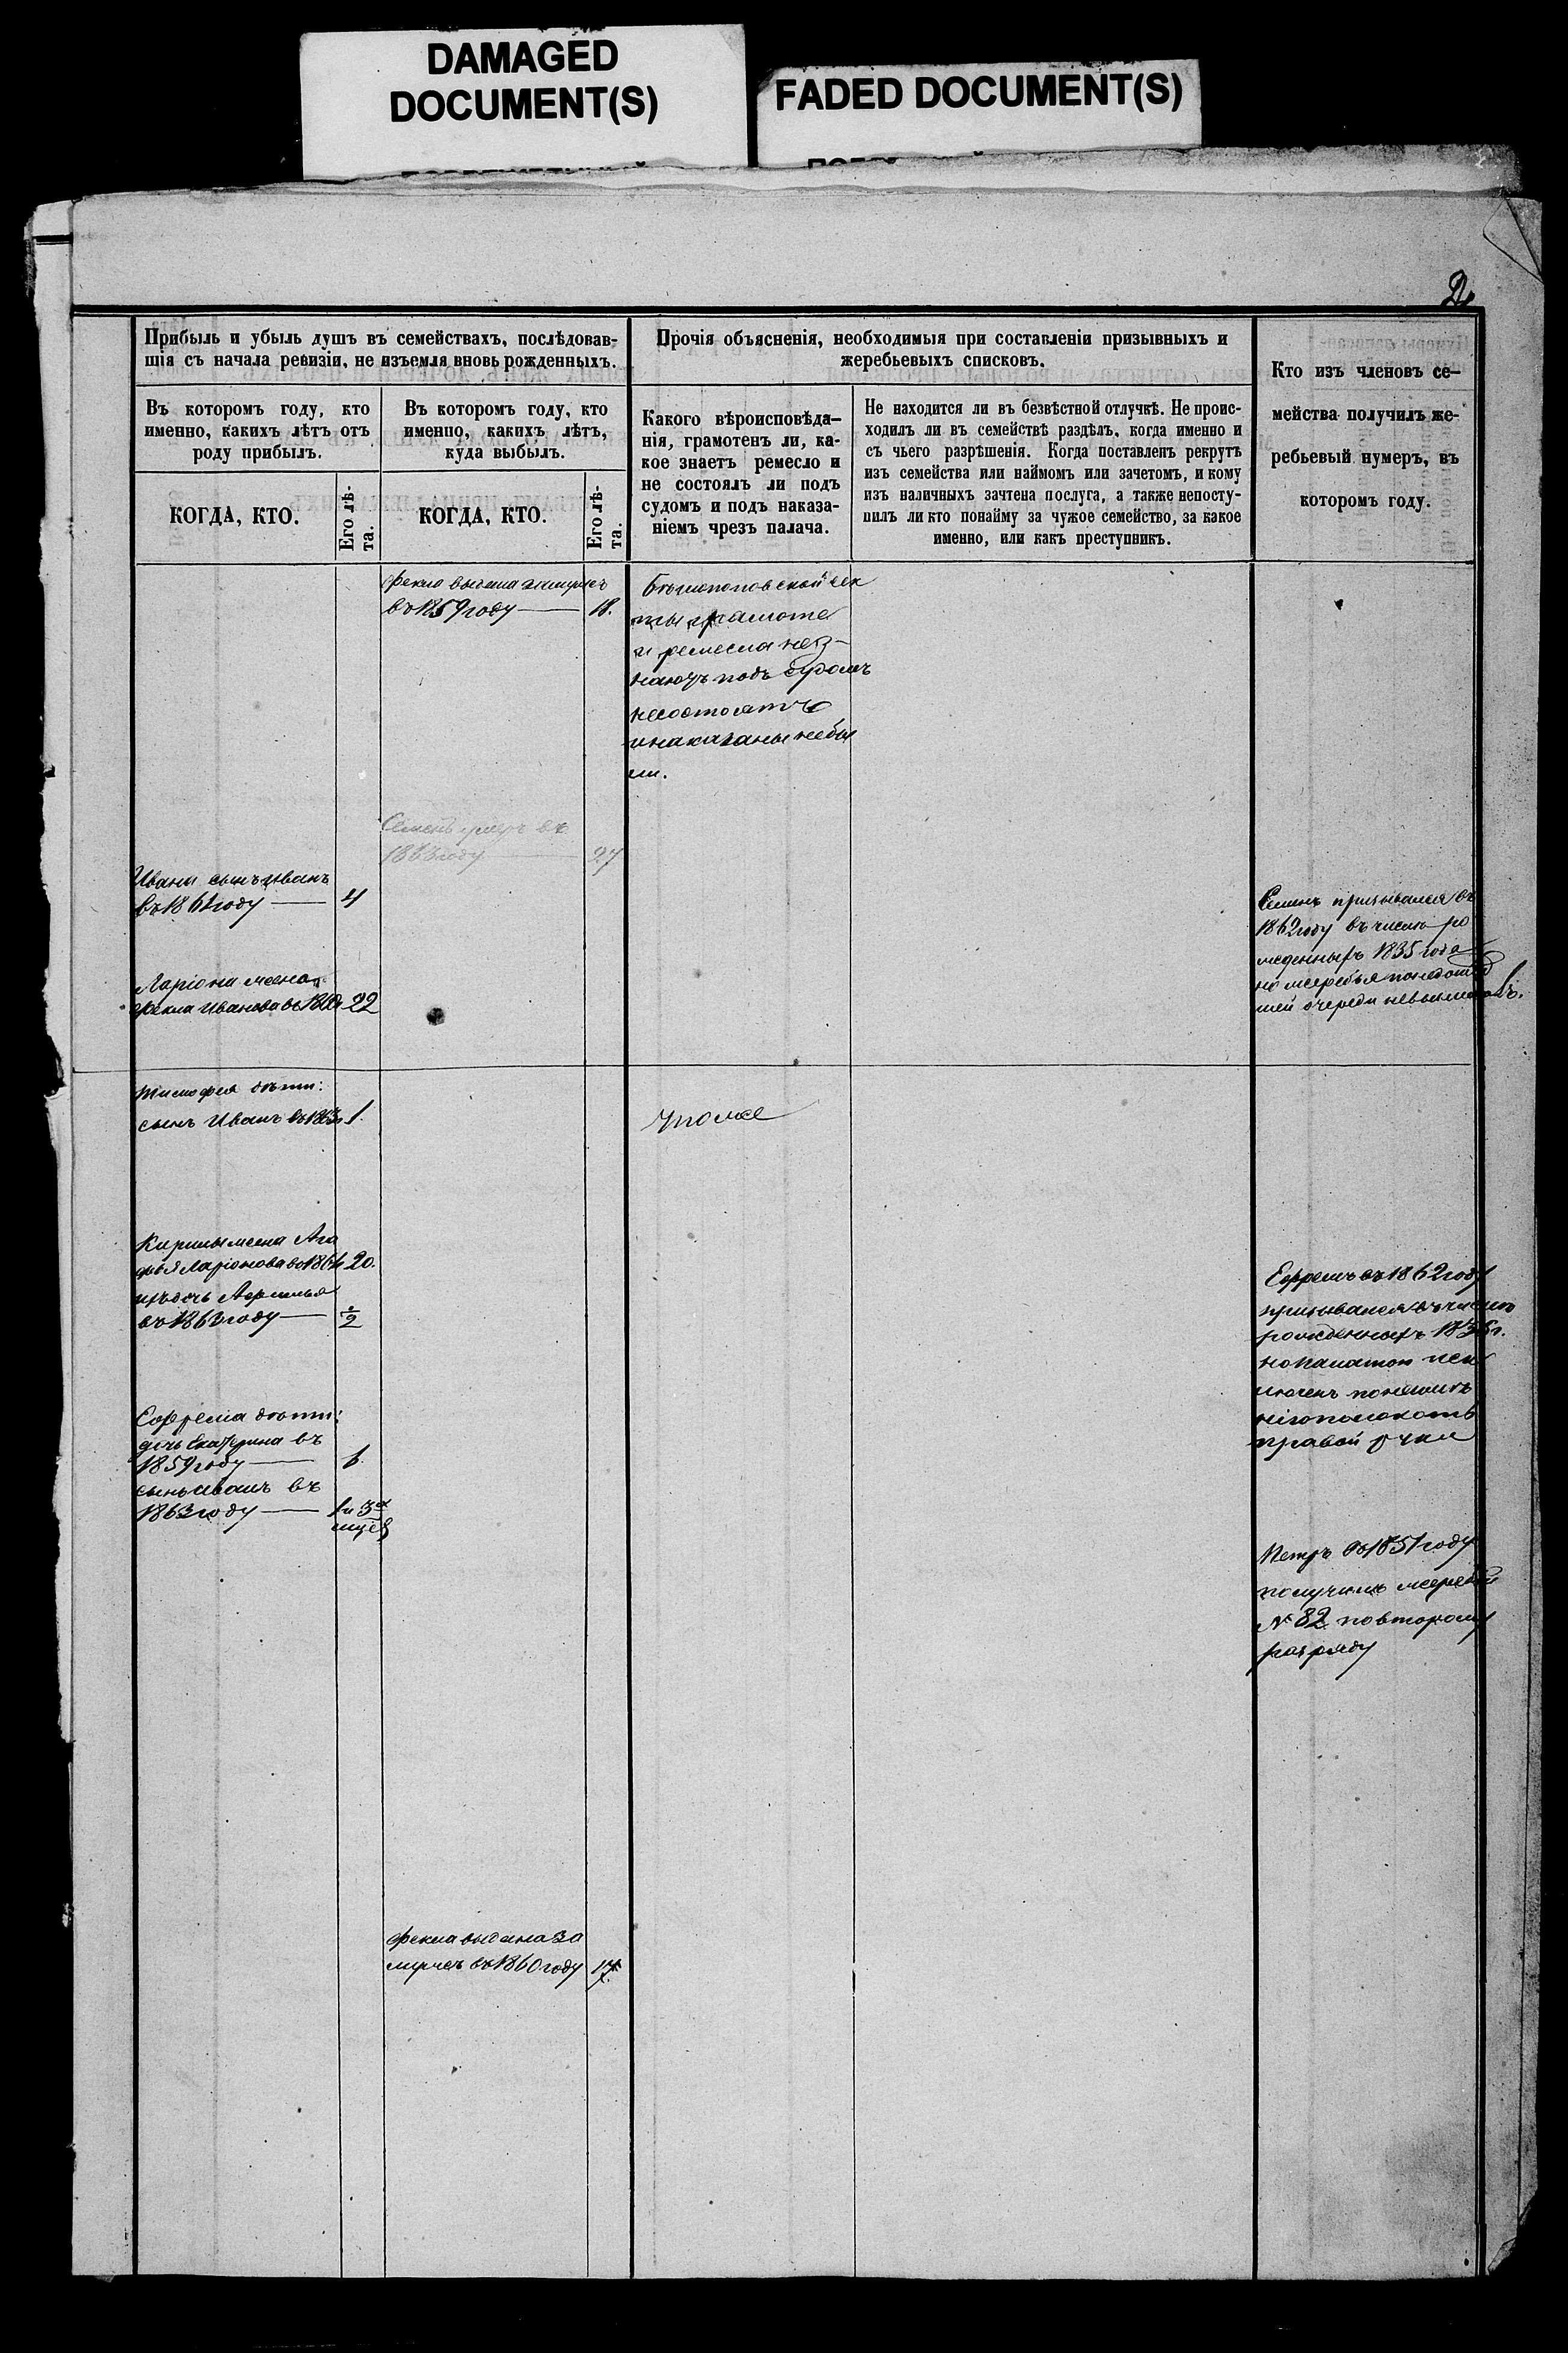 DAMAGED
DOCUMENT(S)
FADED DOCUMENT(S)
2
Прибыль и убыль душъ въ семействахъ, послѣдовав-
шія съ начала ревизіи, не изъемля вновь рожденныхъ.
Въ которомъ году, кто
именно, какихъ лѣтъ отъ
роду прибылъ.
КОГДА, КТО.
Его лѣ-
та.
Въ которомъ году, кто
именно, какихъ лѣтъ,
куда выбылъ.
КОГДА, КТО.
Его лѣ-
та.
Прочія объясненія, необходимыя при составленіи призывныхъ и
жеребьевыхъ списковъ.
Какого вѣроисповѣда-
нія, грамотенъ ли, ка-
кое знаетъ ремесло и
не состоялъ ли подъ
судомъ и подъ наказа-
ніемъ чрезъ палача.
Не находится ли въ безвѣстной отлучкѣ. Не проис-
ходилъ ли въ семействѣ раздѣлъ, когда именно и
съ чьего разрѣшенія. Когда поставленъ рекрутъ
изъ семейства или наймомъ или зачетомъ, и кому
изъ наличныхъ зачтена послуга, а также непосту-
пилъ ли кто понайму за чужое семейство, за какое
именно, или какъ преступникъ.
Кто изъ членовъ се-
мейства получилъ же-
ребьевый нумеръ, въ
которомъ году.
Фекла выдана замужъ
въ 1859 году — 18.
Бѣглопоповской сек
ты грамоте
и ремесла нез-
наютъ подъ судомъ
несостоятъ
и наказаны небы
ли.
Семенъ умеръ въ
1863 году — 27
Ивана сынъ Иванъ
въ 1861 году — 4
Ларіона жена
Фекла Иванова въ 22
Семенъ призывался въ
1862 году въ число ро
жденныхъ 1835 года
но жеребья понедошед
шей очереди невынималъ.
Тимофея дѣти:
сынъ Иванъ въ 1853 1.
Тоже
Кирилы жена Ага
фья Ларіонова въ 1861 20.
ихъ дочь
въ 1863 году — 1/2
Ефремъ въ 1862 году
призывался въ число
рожденныхъ 1836 г.
но палатою иск
люченъ
правой руки
Ефрема дѣти:
дочь Екатерина въ
1859 году — 6.
сынъ Иванъ въ
1863 году — 1 и 3х
мцѣв
Петръ въ 1851 году
получилъ жеребій
№ 82 по второму
разряду
Фекла выдана за
мужъ въ 1860 году 17.